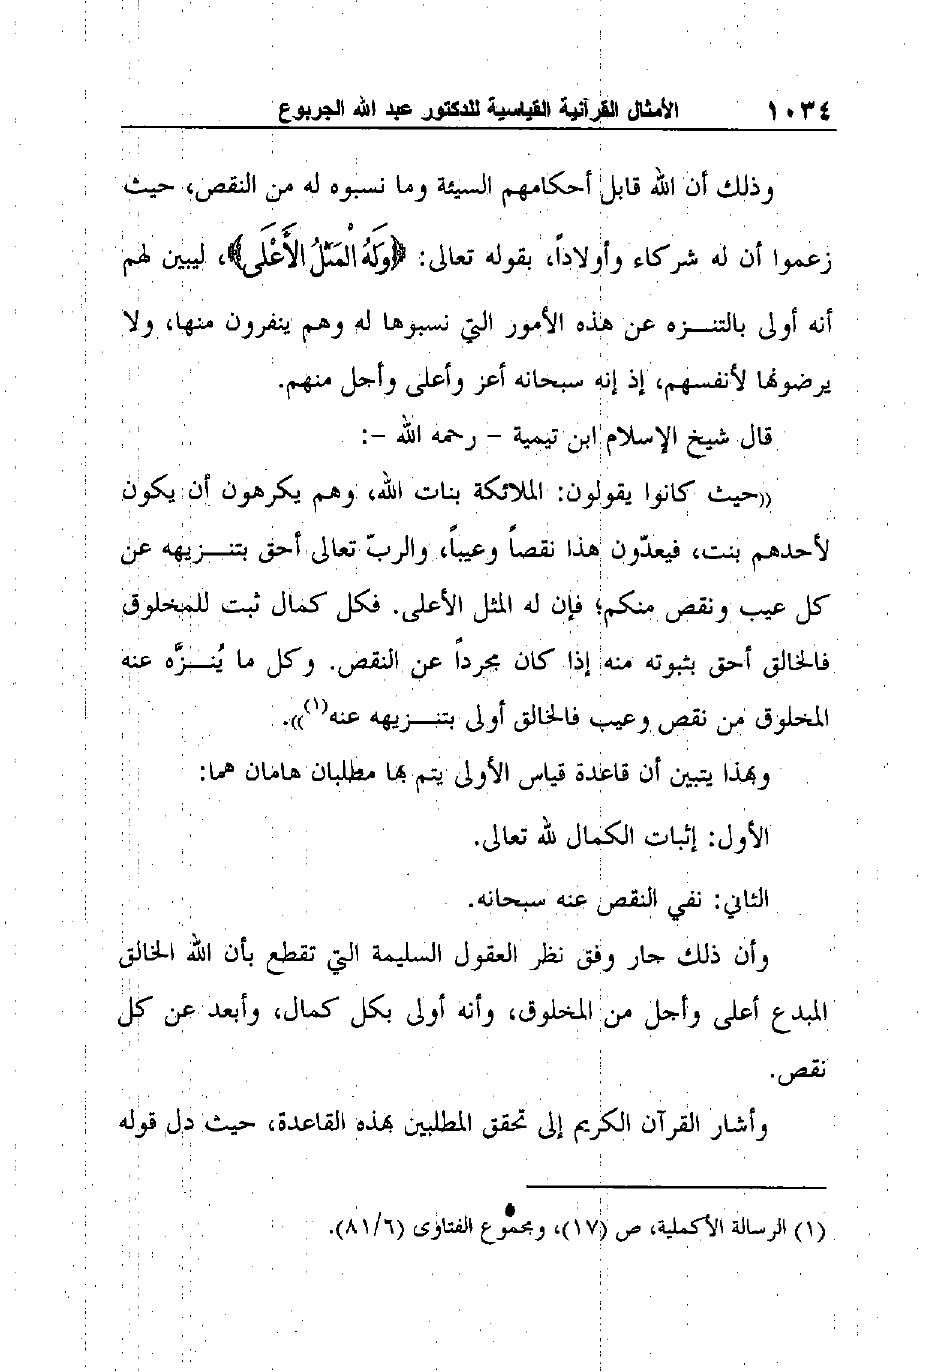 ١٠٣٤ الأمثال القرآنية القياسية للدكتور عبد الله الجربوع
وذلك أن الله قابل أحكامهم السيئة وما نسبوه له من النقص، حيث
زعموا أن له شركاء وأولاداً، بقوله تعالى: ﴿وَلَهُ الْمَثَلُ الأَعْلَى﴾، ليبين لهم
أنه أولى بالتنـزه عن هذه الأمور التي نسبوها له وهم ينفرون منها، ولا
يرضونها لأنفسهم، إذ إنه سبحانه أعز وأعلى وأجل منهم.
قال شيخ الإسلام ابن تيمية - رحمه الله -:
((حيث كانوا يقولون: الملائكة بنات الله، وهم يكرهون أن يكون
لأحدهم بنت، فيعدّون هذا نقصاً وعيباً، والربّ تعالى أحق بتنـزيهه عن
كل عيب ونقص منكم؛ فإن له المثل الأعلى. فكل كمال ثبت للمخلوق
فالخالق أحق بثبوته منه إذا كان مجرداً عن النقص. وكل ما يُنـزَّه عنه
المخلوق من نقص وعيب فالخالق أولى بتنـزيهه عنه(١))).
وبهذا يتبين أن قاعدة قياس الأولى يتم بها مطلبان هامان هما:
الأول: إثبات الكمال لله تعالى.
الثاني: نفي النقص عنه سبحانه.
وأن ذلك جار وفق نظر العقول السليمة التي تقطع بأن الله الخالق
المبدع أعلى وأجل من المخلوق، وأنه أولى بكل كمال، وأبعد عن كل
نقص.
وأشار القرآن الكريم إلى تحقق المطلبين بهذه القاعدة، حيث دل قوله
(١) الرسالة الأكملية، ص (١٧)، ومجموع الفتاوى (٨١/٦).